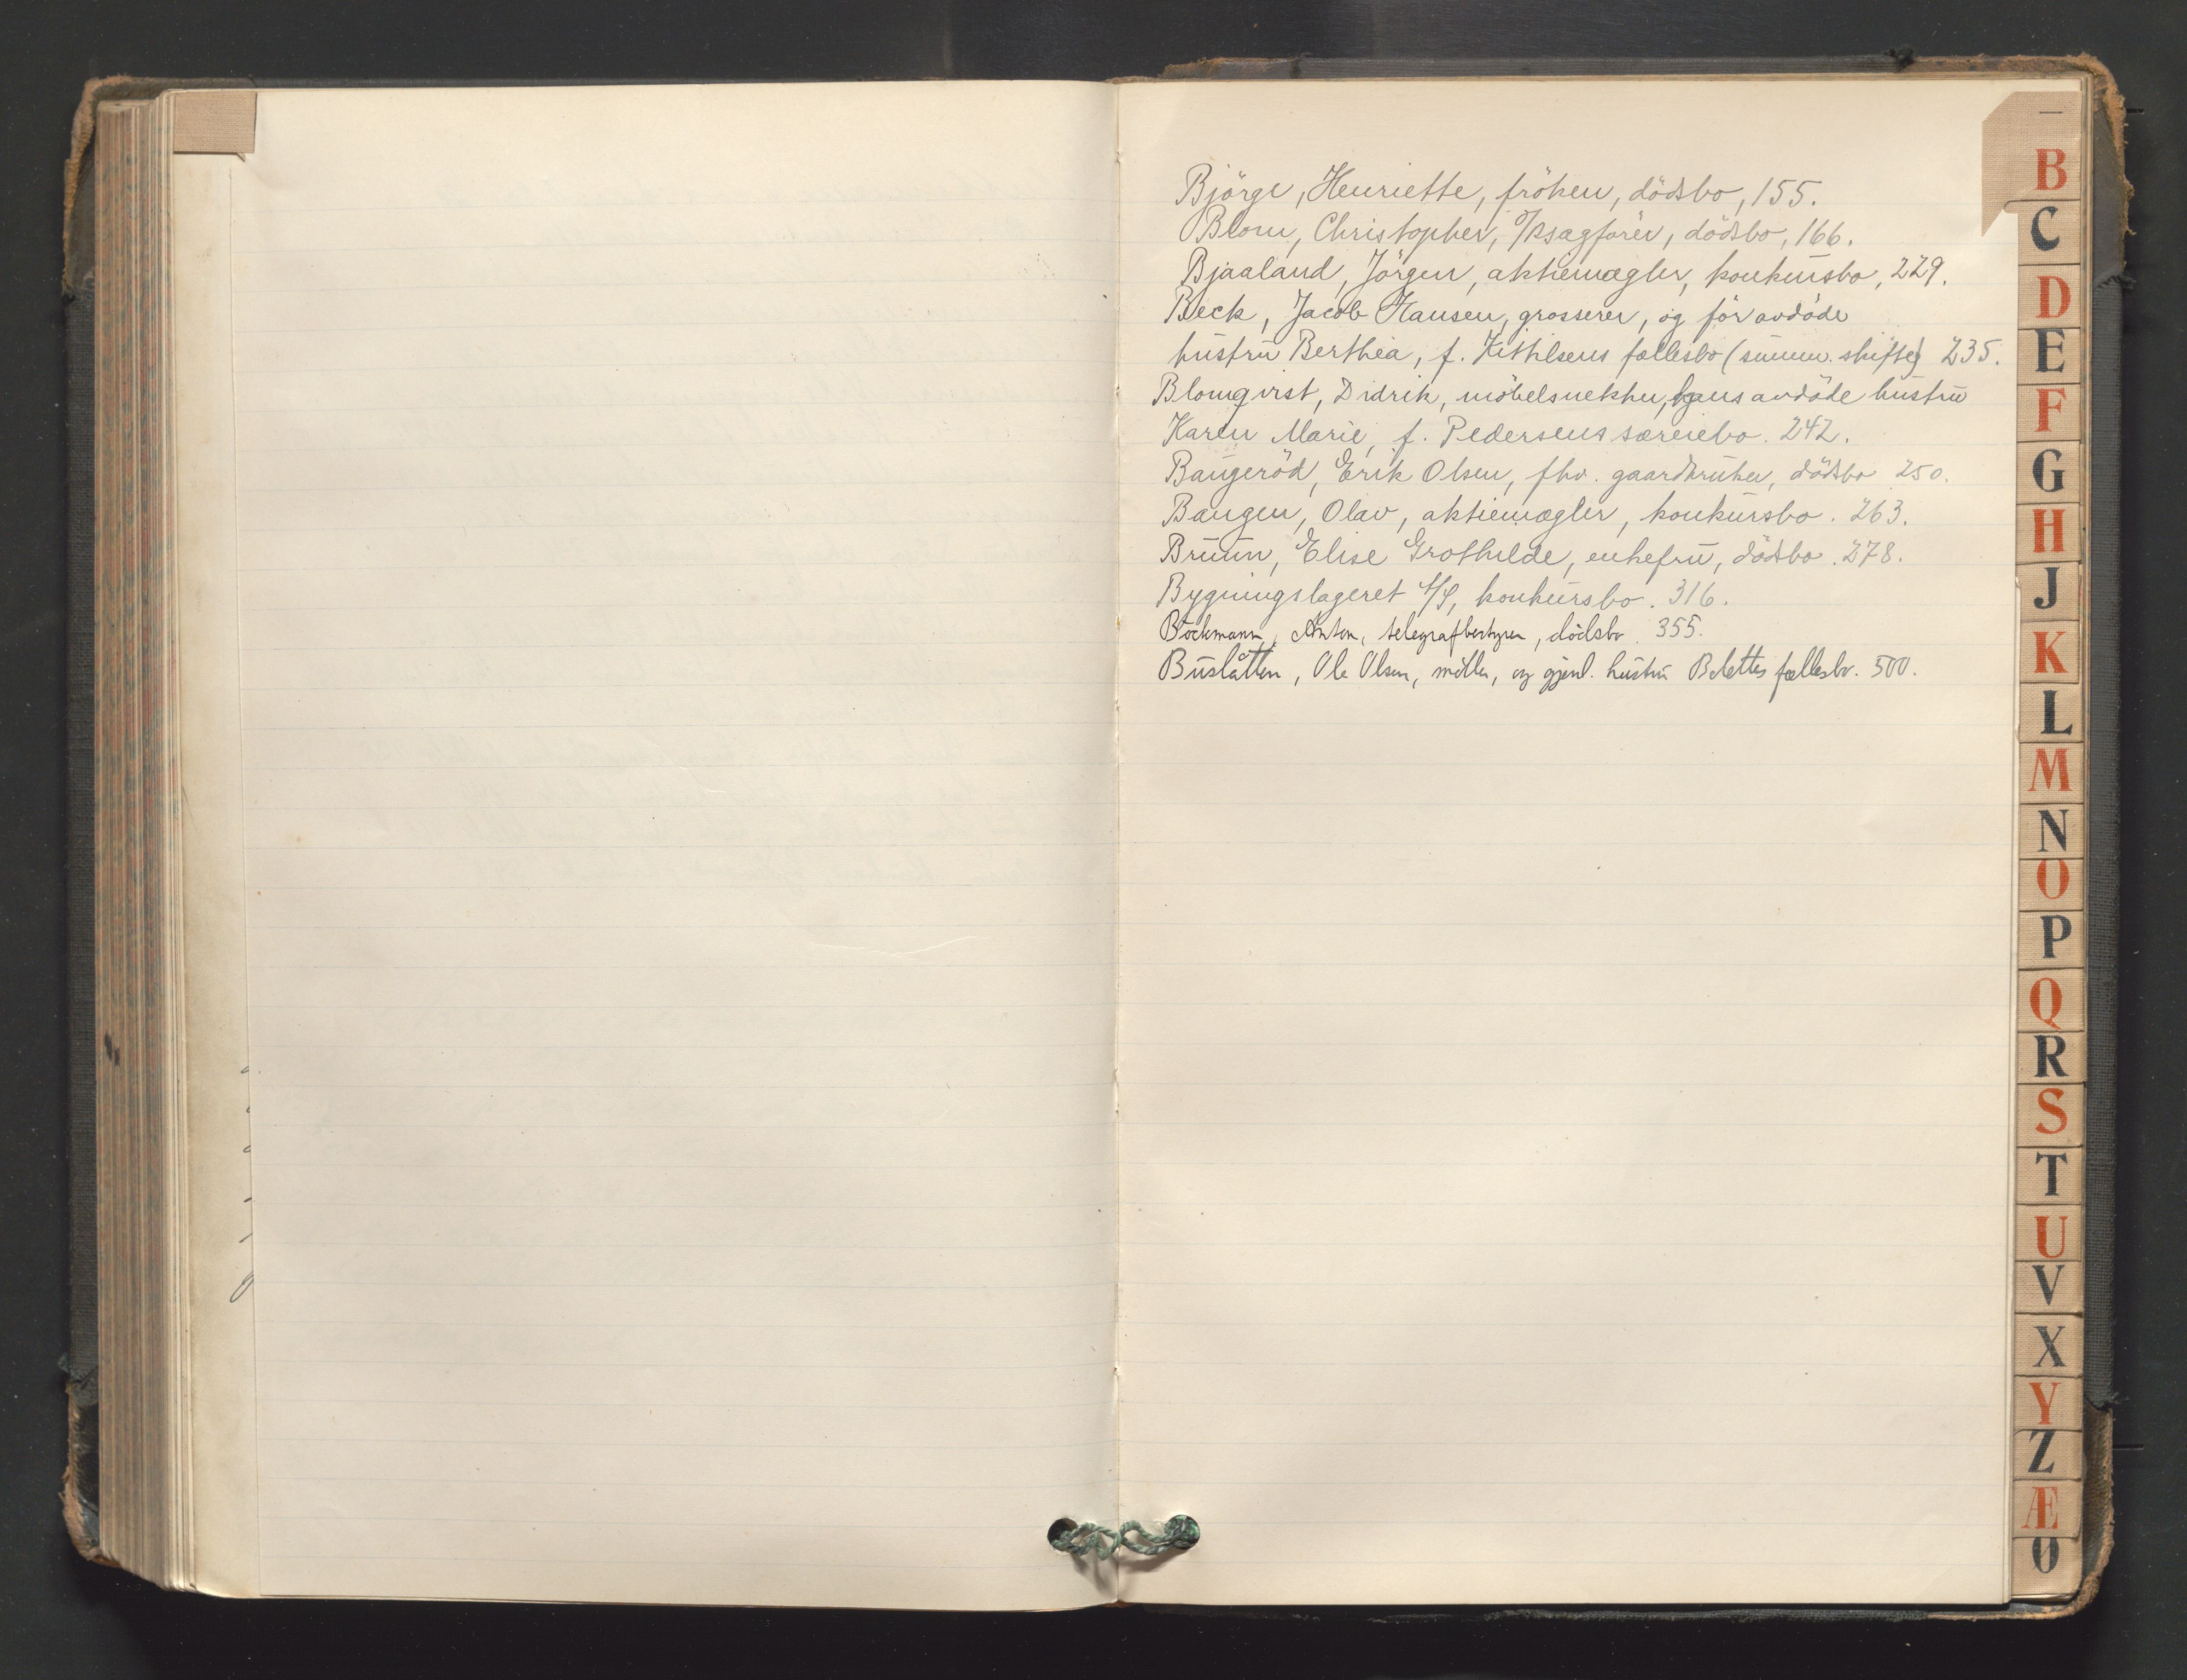 Björge, Henriette, fröken, dödsbo, 155.
Blom, Christopher, o/rsagförer, dödsbo, 166.
Bjaaland, Jörgen, aktiemægler, konkursbo, 229.
Beck, Jacob Hansen, grosserer, og før avdöde
hustru Berthea, f. Kittilsens fællesbo (summ. skifte) 235.
Blomqvist, Didrik, möbelsnekker, hans avdöde hustru
Karen Marie, f. Pedersens særeiebo. 242.
Baugeröd, Erik Olsen, fhv. gaardbruker, dödsbo 250.
Baugen, Olav, aktiemægler, konkursbo. 263.
Bruun, Elise Grothilde, enkefru, dödsbo. 278.
Bygningslageret A/S, konkursbo. 316.
Böckmann, Anton, telegrafbestyrer, dödsbo. 355.
Buslåtten, Ole Olsen, möller, og gjenl. hustru Belettes fællesbo. 500.
B
C
D
E
F
G
H
J
K
L
M
N
O
P
Q
R
S
T
U
V
X
Y
Z
Æ
Ø